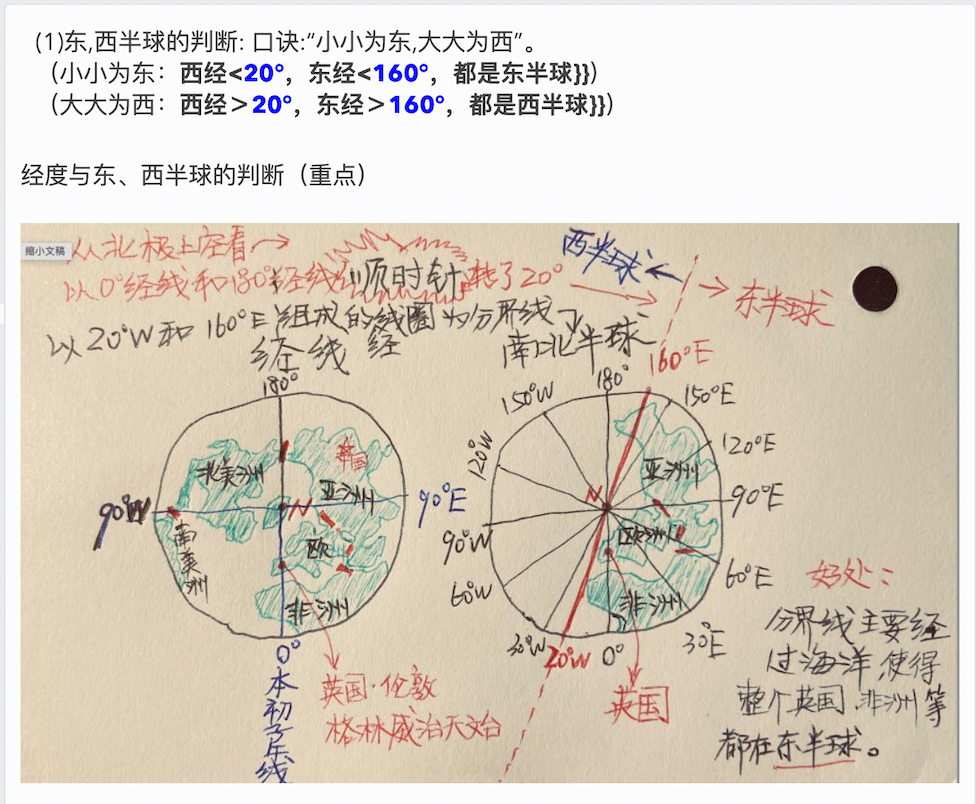 (1)东,西半球的判断: 口诀:“小小为东,大大为西”。
（小小为东：西经<20°，东经<160°，都是东半球}}）
（大大为西：西经＞20°，东经＞160°，都是西半球}}）
经度与东、西半球的判断（重点）
缩小文稿
从北极上空看
以0°经线和180°经线以顺时针转了20°
以20°W和160°E组成的线圈为分界线
经线 经
西半球
东半球
南北半球
160°E
180°
北美洲
韩国
亚洲
90°W
N
90°E
南美洲
欧
非洲
0°
本初子午线
英国·伦敦
格林威治天文台
180°
150°W
150°E
120°W
120°E
亚洲
N
90°E
90°W
欧洲
60°W
60°E
非洲
30°W
20°W
0°
30°E
英国
好处：
分界线主要经
过海洋,使得
整个英国.非洲等
都在东半球。